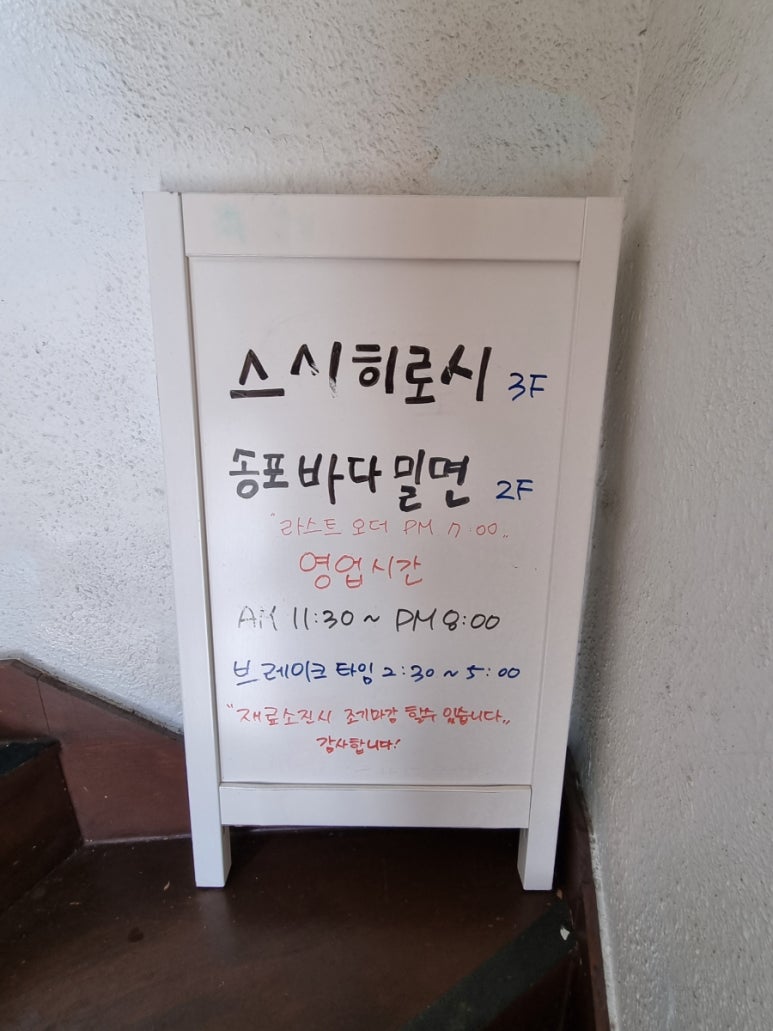 스시히로시 3F
송포바다밀면 2F
"라스트 오더 PM 7:00„
영업시간
AM 11:30 ~ PM 8:00
브레이크 타임 2:30 ~ 5:00
"재료소진시 조기마감 할수 있습니다„
감사합니다!